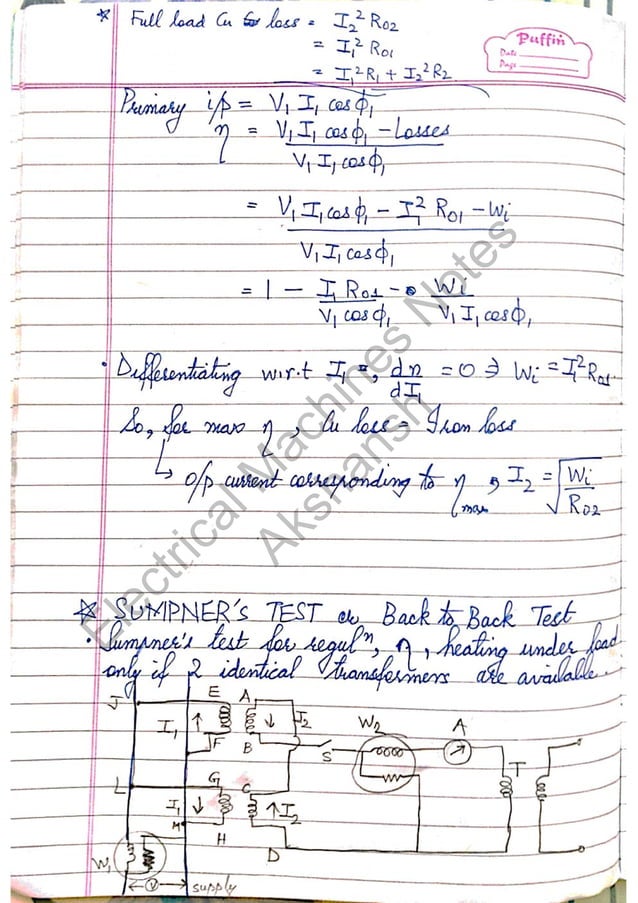 * Full load Cu loss = I₂² R₀₂
= I₁² R₀₁
= I₁² R₁ + I₂² R₂
Puffin
Date
Page
Primary i/p = V₁ I₁ cos ϕ₁
η = (V₁ I₁ cos ϕ₁ - Losses) / (V₁ I₁ cos ϕ₁)
= (V₁ I₁ cos ϕ₁ - I₁² R₀₁ - Wi) / (V₁ I₁ cos ϕ₁)
= 1 - (I₁ R₀₁) / (V₁ cos ϕ₁) - Wi / (V₁ I₁ cos ϕ₁)
• Differentiating w.r.t I₁ =, dη/dI₁ = 0 ∋ Wi = I₁² R₀₁.
So, for max η, Cu loss = Iron loss
↳ o/p current corresponding to η max, I₂ = √(Wi / R₀₂)
Electrical Machines Notes
Akshansh
* SUMPNER'S TEST or Back to Back Test
• Sumpner's test for regulⁿ, η, heating under load
only if 2 identical transformers are available.
J E A I₂ W₂ A
I₁ ↑ F B ↓ S T
L G C
I₁ ↓ ↑ I₂
M H D
W₁
V supply